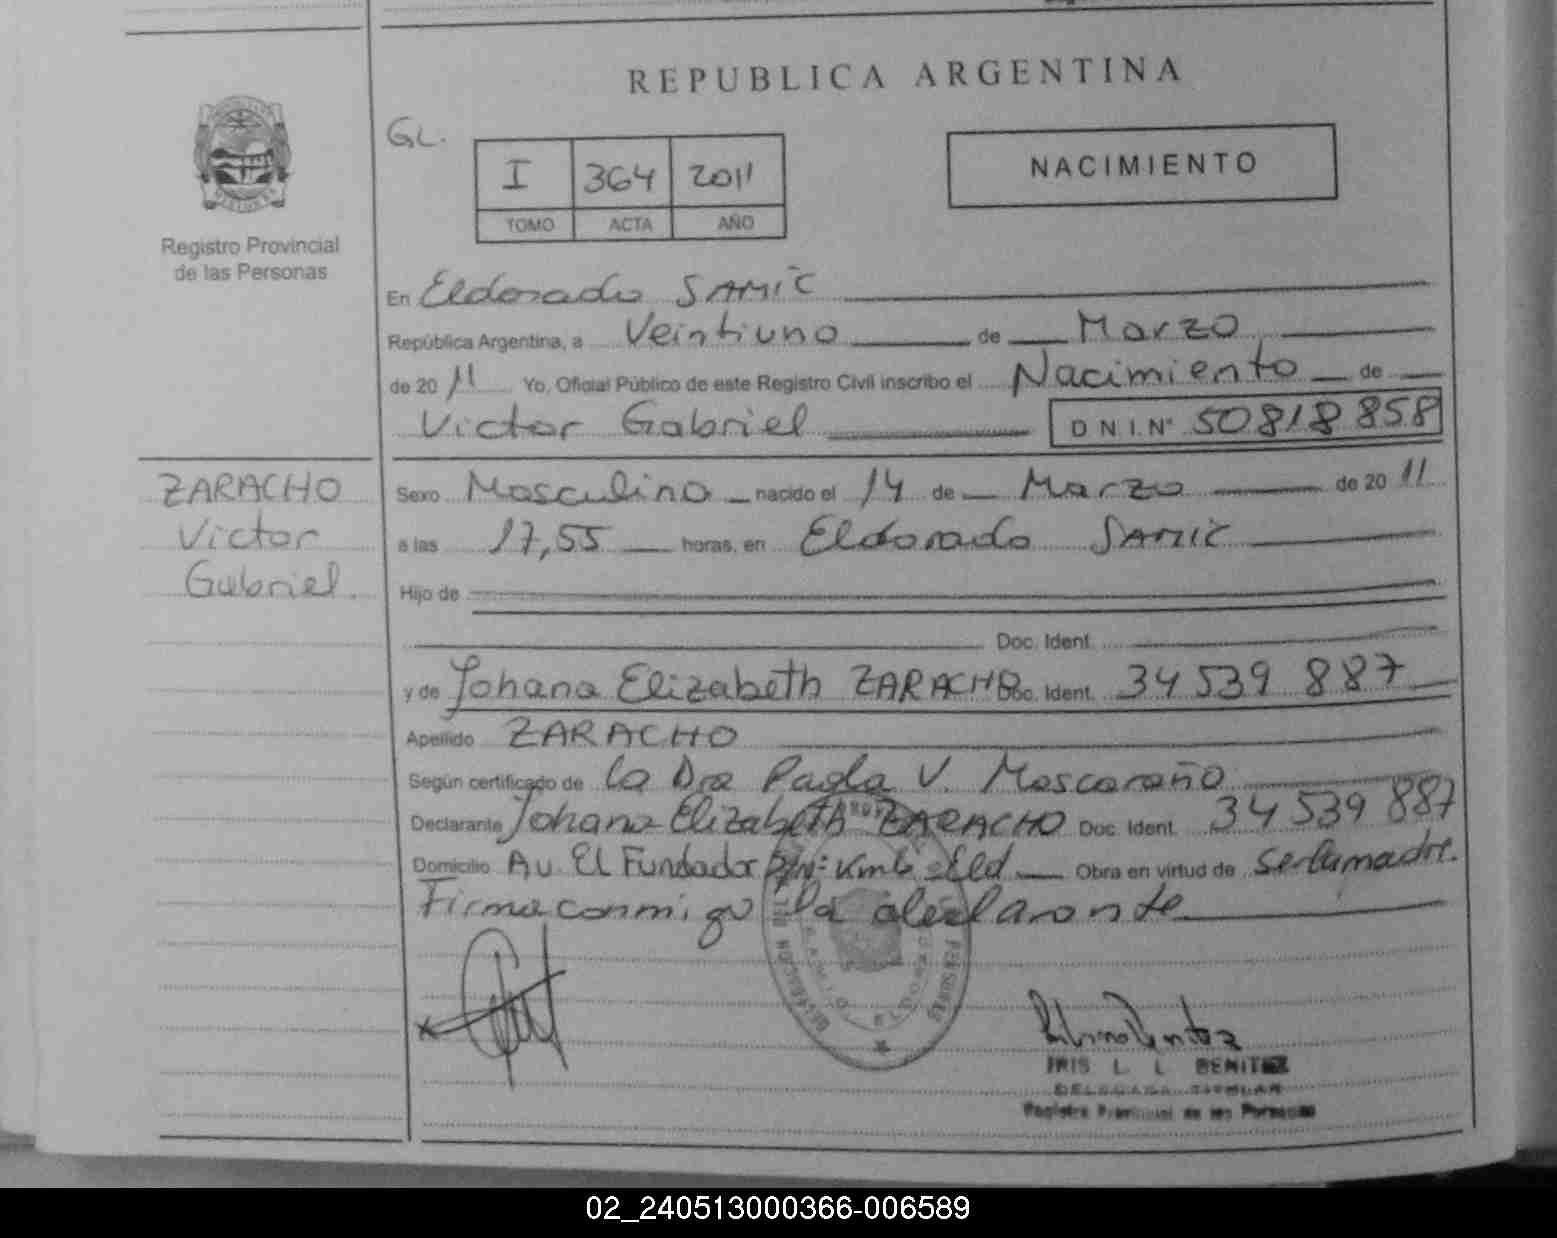 REPUBLICA ARGENTINA
GL.
I 364 2011
TOMO ACTA AÑO
NACIMIENTO
Registro Provincial
de las Personas
En Eldorado SAMIC
República Argentina, a Veintiuno de Marzo
de 20 11 Yo, Oficial Público de este Registro Civil inscribo el Nacimiento de
Victor Gabriel D N I. N° 50818858
ZARACHO
Victor
Gabriel.
Sexo Masculino nacido el 14 de Marzo de 20 11
a las 17,55 horas, en Eldorado SAMIC
Hijo de
Doc. Ident.
y de Johana Elizabeth ZARACHO Doc. Ident. 34 539 887
Apellido ZARACHO
Según certificado de la Dra Paola V. Moscaraño
Declarante Johana Elizabeth ZARACHO Doc. Ident. 34 539 887
Domicilio Av. El Fundador Km6 Eld Obra en virtud de Ser la madre.
Firma conmigo la declarante
IRIS L. L. BENITEZ
DELEGADA TITULAR
Registro Provincial de las Personas
02_240513000366-006589